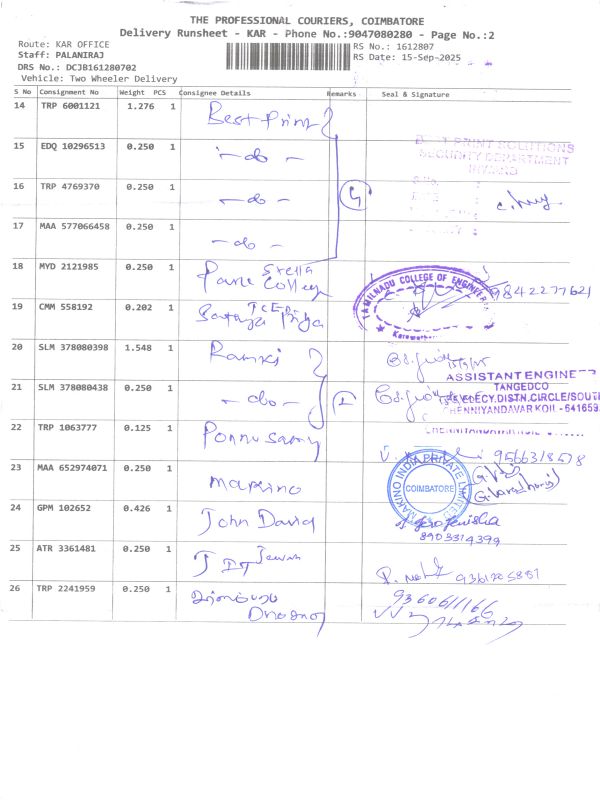 THE PROFESSIONAL COURIERS, COIMBATORE
Delivery Runsheet - KAR - Phone No.:9047080280 - Page No.:2
Route: KAR OFFICE
RS No.: 1612807
Staff: PALANIRAJ
RS Date: 15-Sep-2025
DRS No.: DCJB161280702
Vehicle: Two Wheeler Delivery
S No Consignment No Weight PCS Consignee Details Remarks Seal & Signature
14 TRP 6001121 1.276 1 Best Print
15 EDQ 10296513 0.250 1 - do -
PRINT SOLUTIONS
SECURITY DEPARTMENT
INWARD
16 TRP 4769370 0.250 1 - do -
17 MAA 577066458 0.250 1 - do -
18 MYD 2121985 0.250 1 Stella
College
TAMILNADU COLLEGE OF ENGINEERING
9842277621
19 CMM 558192 0.202 1 TCE
Sathya Priya
20 SLM 378080398 1.548 1 Ramki
ASSISTANT ENGINEE
TANGEDCO
21 SLM 378080438 0.250 1 - do -
CDECY.DISTN.CIRCLE/SOUTH
CHENNIYANDAVAR KOIL - 641659
22 TRP 1063777 0.125 1 Ponnusamy
9566318578
23 MAA 652974071 0.250 1 Makino
MAKINO INDIA PRIVATE LIMITED
COIMBATORE
24 GPM 102652 0.426 1 John David
8903314399
25 ATR 3361481 0.250 1
26 TRP 2241959 0.250 1
9360611166